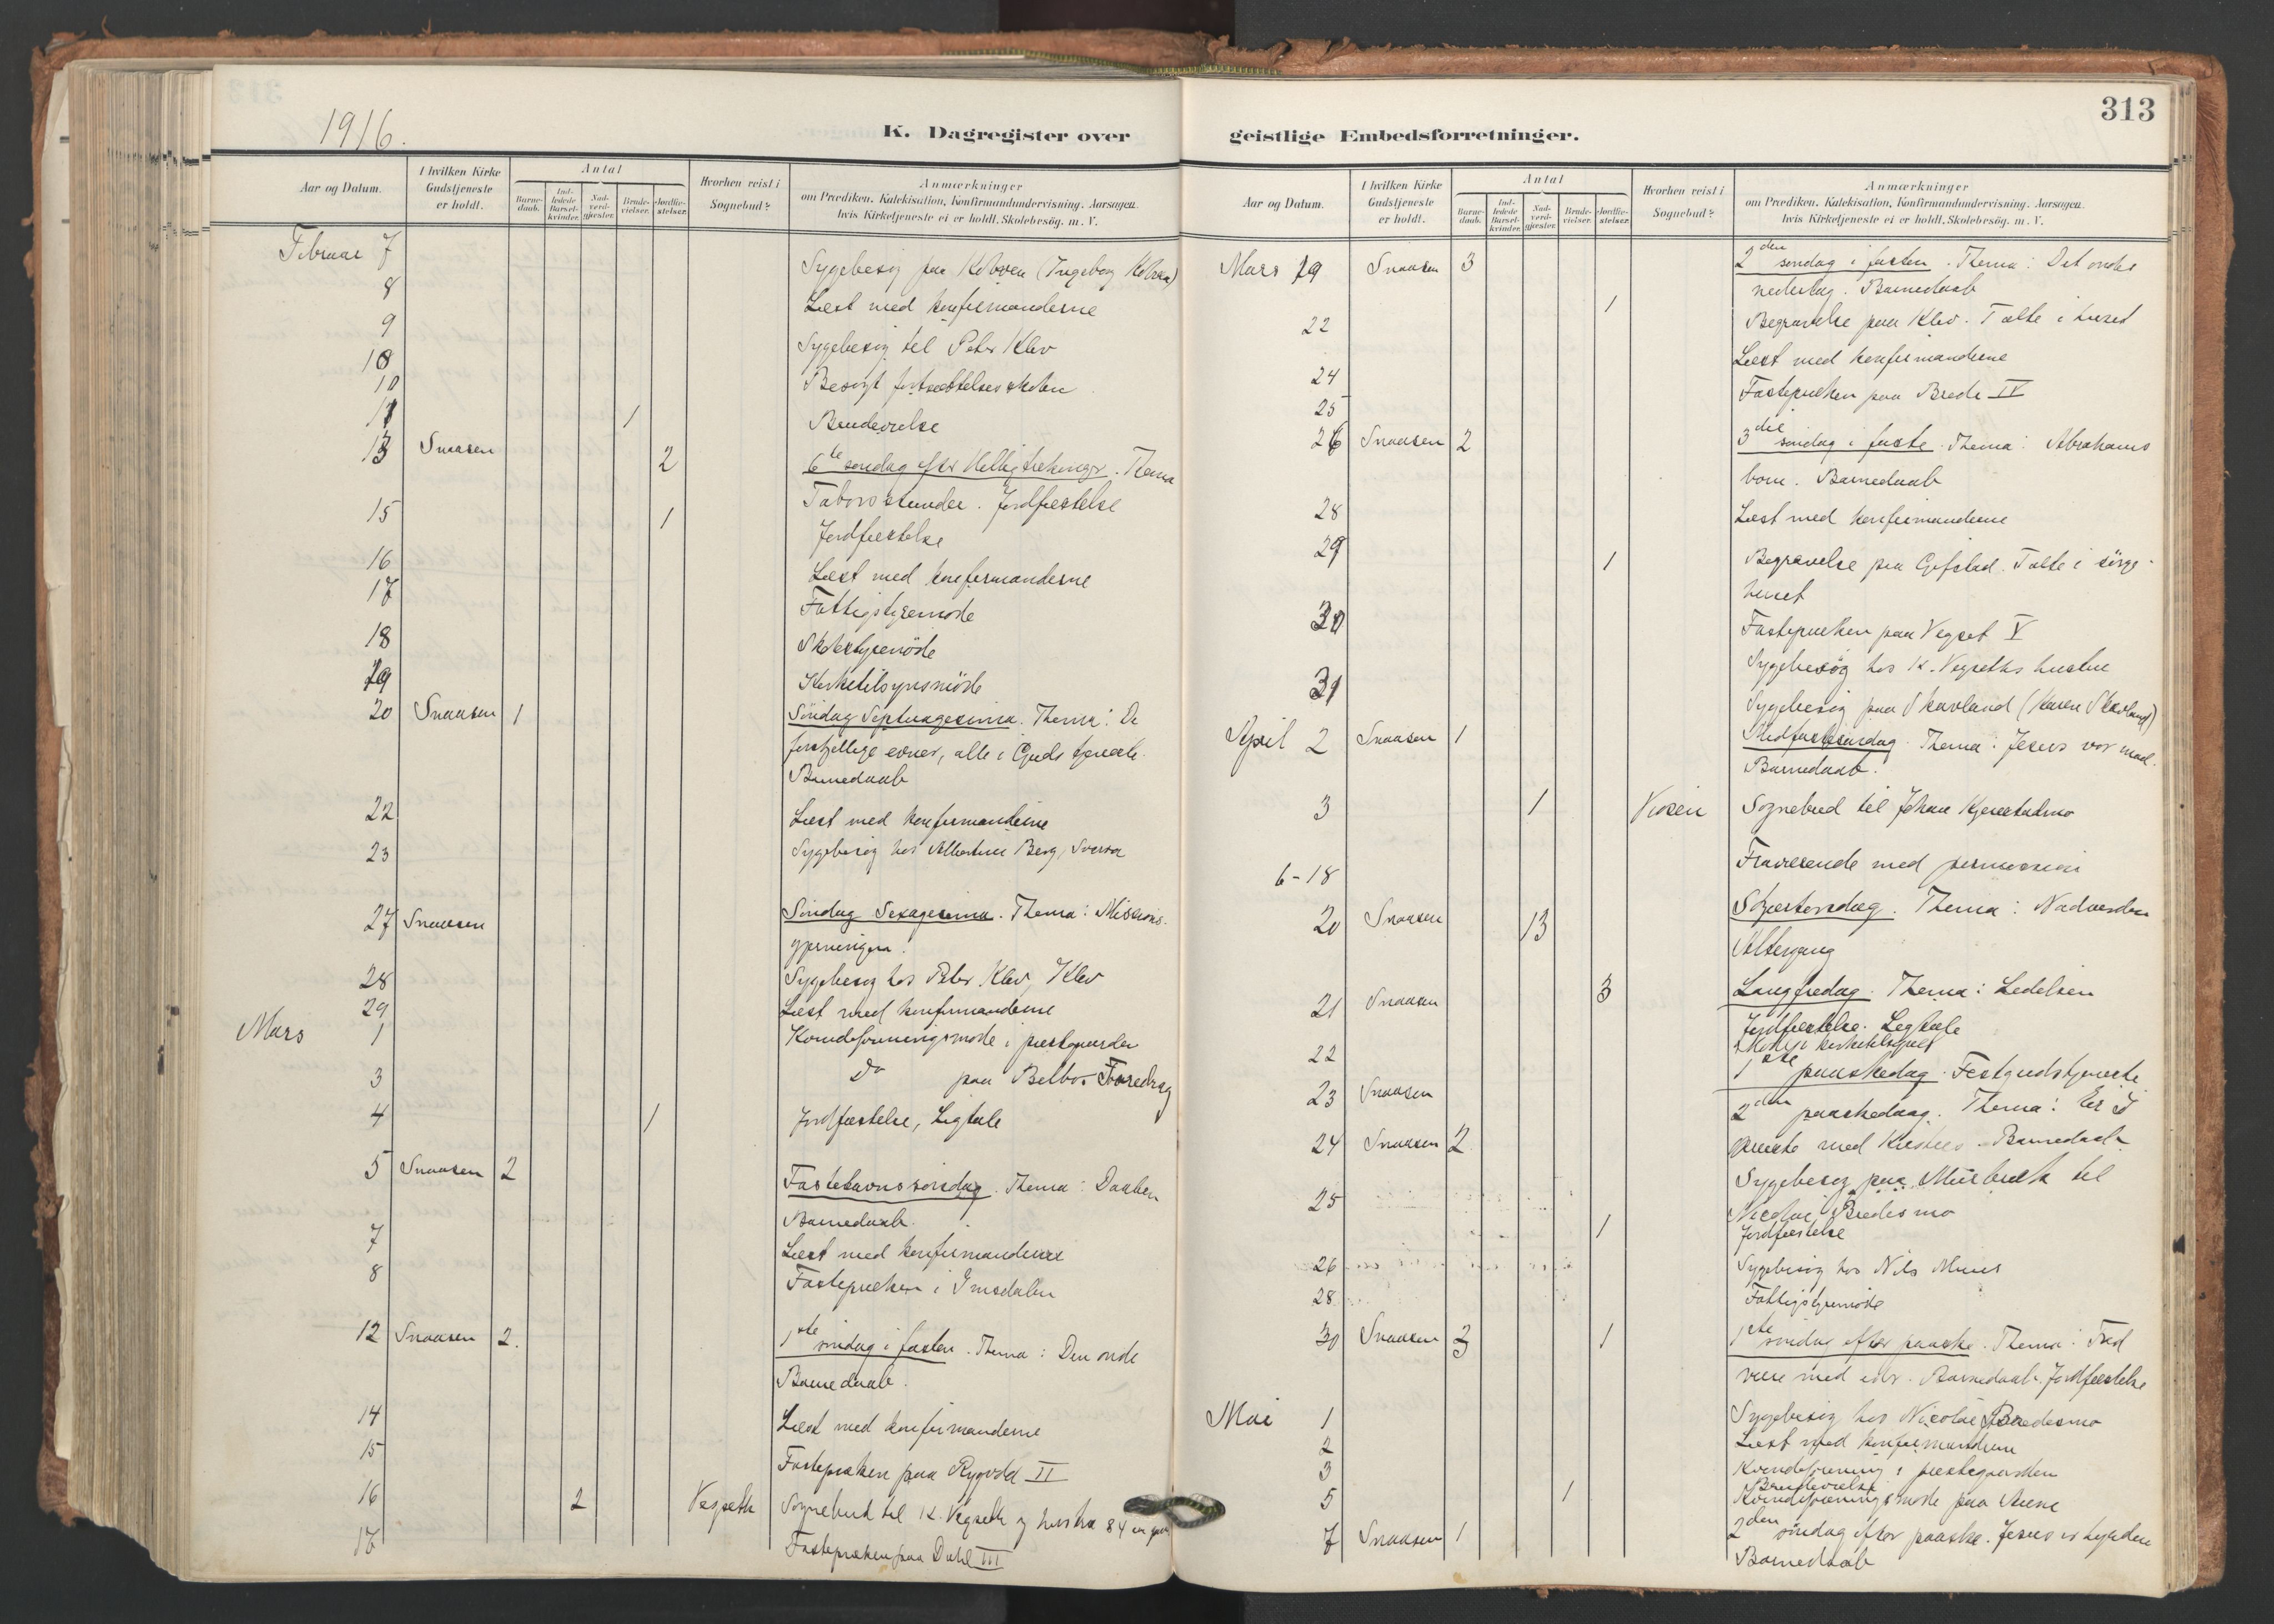 1916.
K. Dagregister over
Aar og Datum.
I hvilken Kirke Gudstjeneste er holdt.
Antal
Barnedaab.
Indledede Barselkvinder.
Nadverdgjæster.
Brudevielser.
Jordfæstelser.
Hvorhen reist i Sognebud?
Anmærkninger
om Prædiken, Katekisation, Konfirmandundervisning. Aarsagen
hvis Kirketjeneste ei er holdt. Skolebesøg. m. V.
Februar 7 Sygebesøg paa (Ingeborg
8 Læst med konfirmanderne
9 Sygebesøg til Peter Klev
10
10 Besøgt fortsættelsesskolen
11 1 Brudevielse
13 Snaasen 2 6te søndag efter Helligtrekonger. Thema
Taborsstunder. Jordfæstelse
15 1 Jordfæstelse
16 Læst med konfirmanderne
17 Fattigstyremøde
18 Skolestyremøde
19 Kirketilsynsmøde
20 Snaasen 1 Søndag Septuagesima. Thema: De
forskjellige evner, alle i Guds tjeneste.
Barnedaab
22 Læst med konfirmanderne
23 Sygebesøg hos Berg,
27 Snaasen Søndag Sexagesima. Thema: Missions-
gjerningen.
28 Sygebesøg hos Peter Klev, Klev
29 Læst med konfirmanderne
Mars 1 Kvindeforeningsmøde i præstegaarden
3 Do paa Belbo. Foredrag
4 1 Jordfæstelse, Ligtale
5 Snaasen 2 Fastelavnssøndag. Thema: Daaben
Barnedaab.
7 Læst med konfirmanderne
8 Fastepræken i Imsdalen
12 Snaasen 2. 1ste søndag i fasten. Thema: Den onde
Barnedaab.
14 Læst med konfirmanderne
15 Fastepræken paa II
16 2 Vegseth Sognebud til K. Vegseth og hustru 84 aar
17 Fastepræken paa Dahl III
313
geistlige Embedsforretninger.
Aar og Datum.
I hvilken Kirke Gudstjeneste er holdt.
Antal
Barnedaab.
Indledede Barselkvinder.
Nadverdgjæster.
Brudevielser.
Jordfæstelser.
Hvorhen reist i Sognebud?
Anmærkninger
om Prædiken, Katekisation, Konfirmandundervisning. Aarsagen
hvis Kirketjeneste ei er holdt. Skolebesøg. m. V.
Mars 19 Snaasen 3 2den søndag i fasten. Thema: Det ondes
nederlag. Barnedaab
22 1 Begravelse paa Klev. Talte i huset
Læst med konfirmanderne
24
25 Fastepræken paa Brede IV
26 Snaasen 2 3die søndag i faste. Thema: Abrahams
børn. Barnedaab
28 Læst med konfirmanderne
29 1 Begravelse paa Gifstad. Talte i sørge-
huset
30 Fastepræken paa Vegset V
Sygebesøg hos K. Vegseths hustru
31 Sygebesøg paa Skavland (Karen Skavland)
April 2 Snaasen 1 Midfastesøndag. Thema: Jesus vor mad.
Barnedaab.
3 1 Viosen Sognebud til Johan
6-18 Fraværende med permission
20 Snaasen 13 Skjærtorsdag. Thema: Nadverden
Altergang
21 Snaasen 3 Langfredag. Thema: Lidelsen
Jordfæstelse. Ligtale
22 kirketilsynet
23 Snaasen 1ste paaskedag. Festgudstjeneste
24 Snaasen 2 2den paaskedag. Thema: Er I
med Kristus. Barnedaab
25 Sygebesøg paa til
Nicolai Bredesmo
1 Jordfæstelse
26 Sygebesøg hos Nils
28 Fattigstyremøde
30 Snaasen 3 1 1ste søndag efter paaske. Thema: Fred
være med eder. Barnedaab. Jordfæstelse
Mai 1 Sygebesøg hos Nicolai Bredesmo
2 Læst med konfirmanderne
3 Kvindeforening i præstegaarden
5 1 Brudevielse
Kvindeforeningsmøde paa
7 Snaasen 1 2den søndag efter paaske. Jesus er hyrden
Barnedaab